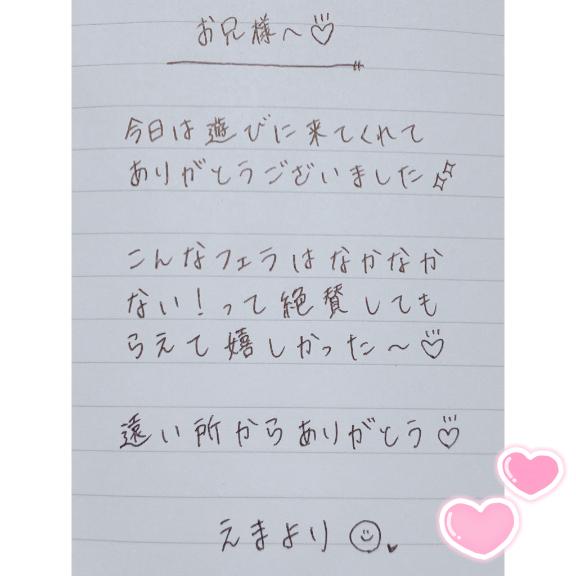 お兄様へ♡
今日は遊びに来てくれて
ありがとうございました✨
こんなフェラはなかなか
ない!って絶賛しても
らえて嬉しかった〜♡
遠い所からありがとう♡
えまより☺♥